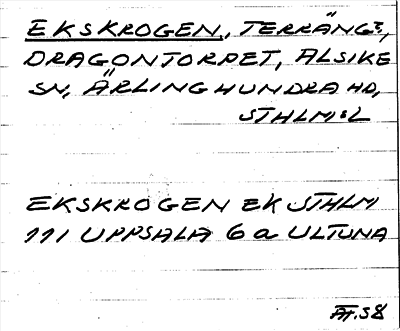 EKSKROGEN, TERRÄNG?,
DRAGONTORPET, ALSIKE
SN, ÄRLINGHUNDRA HD,
STHLM:L
EKSKROGEN EK STHLM
111 UPPSALA 6 a ULTUNA